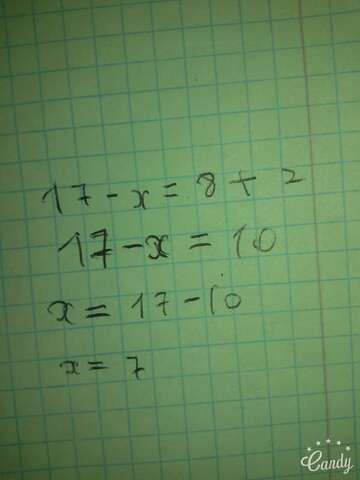 17 - x = 8 + 2
17 - x = 10
x = 17 - 10
x = 7
Candy